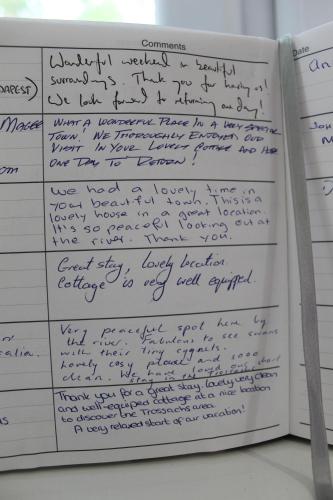 Comments
Date
Wonderful weekend in beautiful
surroundings. Thank you for having us!
We look forward to returning one day!
WHAT A WONDERFUL PLACE IN A VERY SPECIAL
TOWN. WE THOROUGHLY ENJOYED OUR
VISIT IN YOUR LOVELY COTTAGE AND HOPE
ONE DAY TO RETURN!
We had a lovely time in
your beautiful town. This is a
lovely house in a great location.
It's so peaceful looking out at
the river. Thank you.
Great stay, lovely location.
Cottage is very well equipped.
Very peaceful spot here by
the river. Fabulous to see swans
with their tiny cygnets.
Lovely cosy place and sooo
clean. We have loved our short
stay in the
Thank you for a great stay, lovely, very clean
and well-equipped cottage at a nice location
to discover the Trossachs area.
A very relaxed start of our vacation!